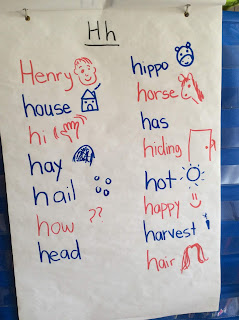 Hh
Henry
house
hi
hay
hail
how ??
head
hippo
horse
has
hiding
hot
happy
harvest
hair